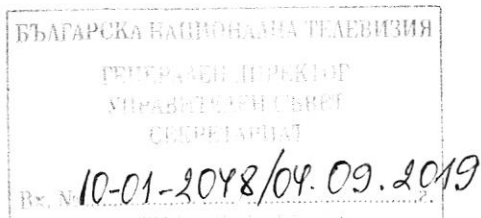 БЪЛГАРСКА НАЦИОНАЛНА ТЕЛЕВИЗИЯ
ГЕНЕРАЛЕН ДИРЕКТОР
УПРАВИТЕЛЕН СЪВЕТ
СЕКРЕТАРИАТ
Вх. № 10-01-2048/04.09.2019 г.